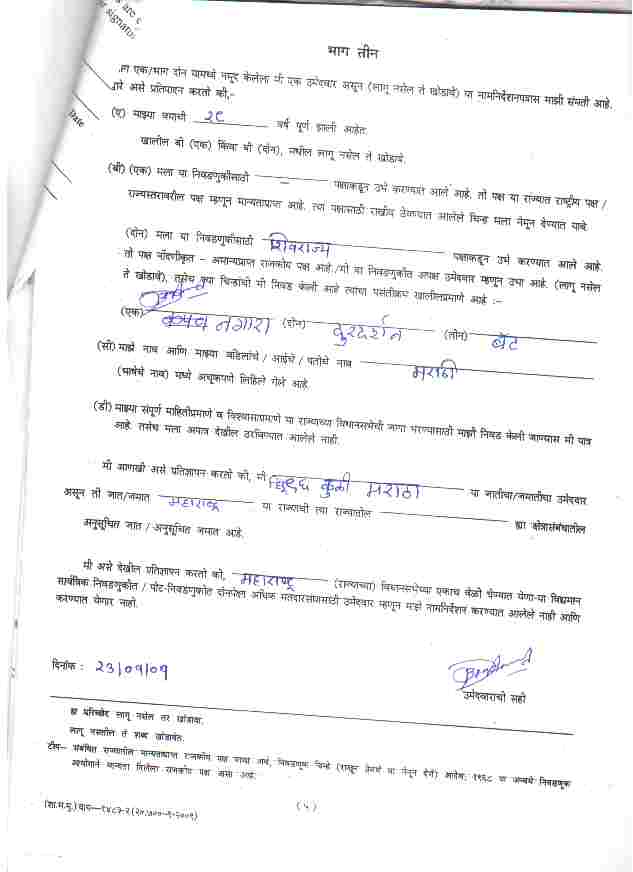 are
signatu
Date
भाग तीन
एक/भाग दोन यामध्ये नमूद केलेला मी एक उमेदवार असून (लागू नसेल ते खोडावे) या नामनिर्देशनपत्रास माझी संमती आहे.
असे प्रतिपादन करतो की,-
(ए) माझ्या वयाची २९ वर्षे पूर्ण झाली आहेत.
खालील बी (एक) किंवा बी (दोन), मधील लागू नसेल ते खोडावे.
(बी) (एक) मला या निवडणुकीसाठी — पक्षाकडून उभे करण्यात आले आहे. तो पक्ष या राज्यात राष्ट्रीय पक्ष /
राज्यस्तरावरील पक्ष म्हणून मान्यताप्राप्त आहे. त्या पक्षासाठी राखीव ठेवण्यात आलेले चिन्ह मला नेमून देण्यात यावे.
(दोन) मला या निवडणुकीसाठी शिवराज्य पक्षाकडून उभे करण्यात आले आहे.
तो पक्ष नोंदणीकृत - अमान्यप्राप्त राजकीय पक्ष आहे./मी या निवडणुकीत अपक्ष उमेदवार म्हणून उभा आहे. (लागू नसेल
ते खोडावे), तसेच ज्या चिन्हांची मी निवड केली आहे त्यांचा पसंतीक्रम खालीलप्रमाणे आहे :-
(एक) नगारा (दोन) दुरदर्शन (तीन) बॅट
(सी) माझे नाव आणि माझ्या वडिलांचे / आईचे / पतीचे नाव मराठी
(भाषेचे नाव) मध्ये अचूकपणे लिहिले गेले आहे.
(डी) माझ्या संपूर्ण माहितीप्रमाणे व विश्वासाप्रमाणे या राज्याच्या विधानसभेची जागा भरण्यासाठी माझी निवड केली जाण्यास मी पात्र
आहे. तसेच मला अपात्र देखील ठरविण्यात आलेले नाही.
मी आणखी असे प्रतिज्ञापन करतो की, मी कुळी मराठा या जातीचा/जमातीचा उमेदवार
असून ती जात/जमात महाराष्ट्र या राज्याची त्या राज्यातील ह्या क्षेत्रासंबंधातील
अनुसूचित जात / अनुसूचित जमात आहे.
मी असे देखील प्रतिज्ञापन करतो की, महाराष्ट्र (राज्याच्या) विधानसभेच्या एकाच वेळी घेण्यात येणा-या विद्यमान
सार्वत्रिक निवडणुकीत / पोट-निवडणुकीत दोनपेक्षा अधिक मतदारसंघासाठी उमेदवार म्हणून माझे नामनिर्देशन करण्यात आलेले नाही आणि
करण्यात येणार नाही.
दिनांक : 23/09/09
उमेदवाराची सही
हा परिच्छेद लागू नसेल तर खोडावा.
लागू नसतील ते शब्द खोडावेत.
टीप— संबंधित राज्यातील मान्यताप्राप्त राजकीय पक्ष याचा अर्थ, निवडणूक चिन्हे (राखून ठेवणे व नेमून देणे) आदेश, १९६८ या अन्वये निवडणूक
आयोगाने मान्यता दिलेला राजकीय पक्ष असा आहे.
(५)
(शा.म.मु.) वाय—१४८७-२ (२५,७००-९-२००९)